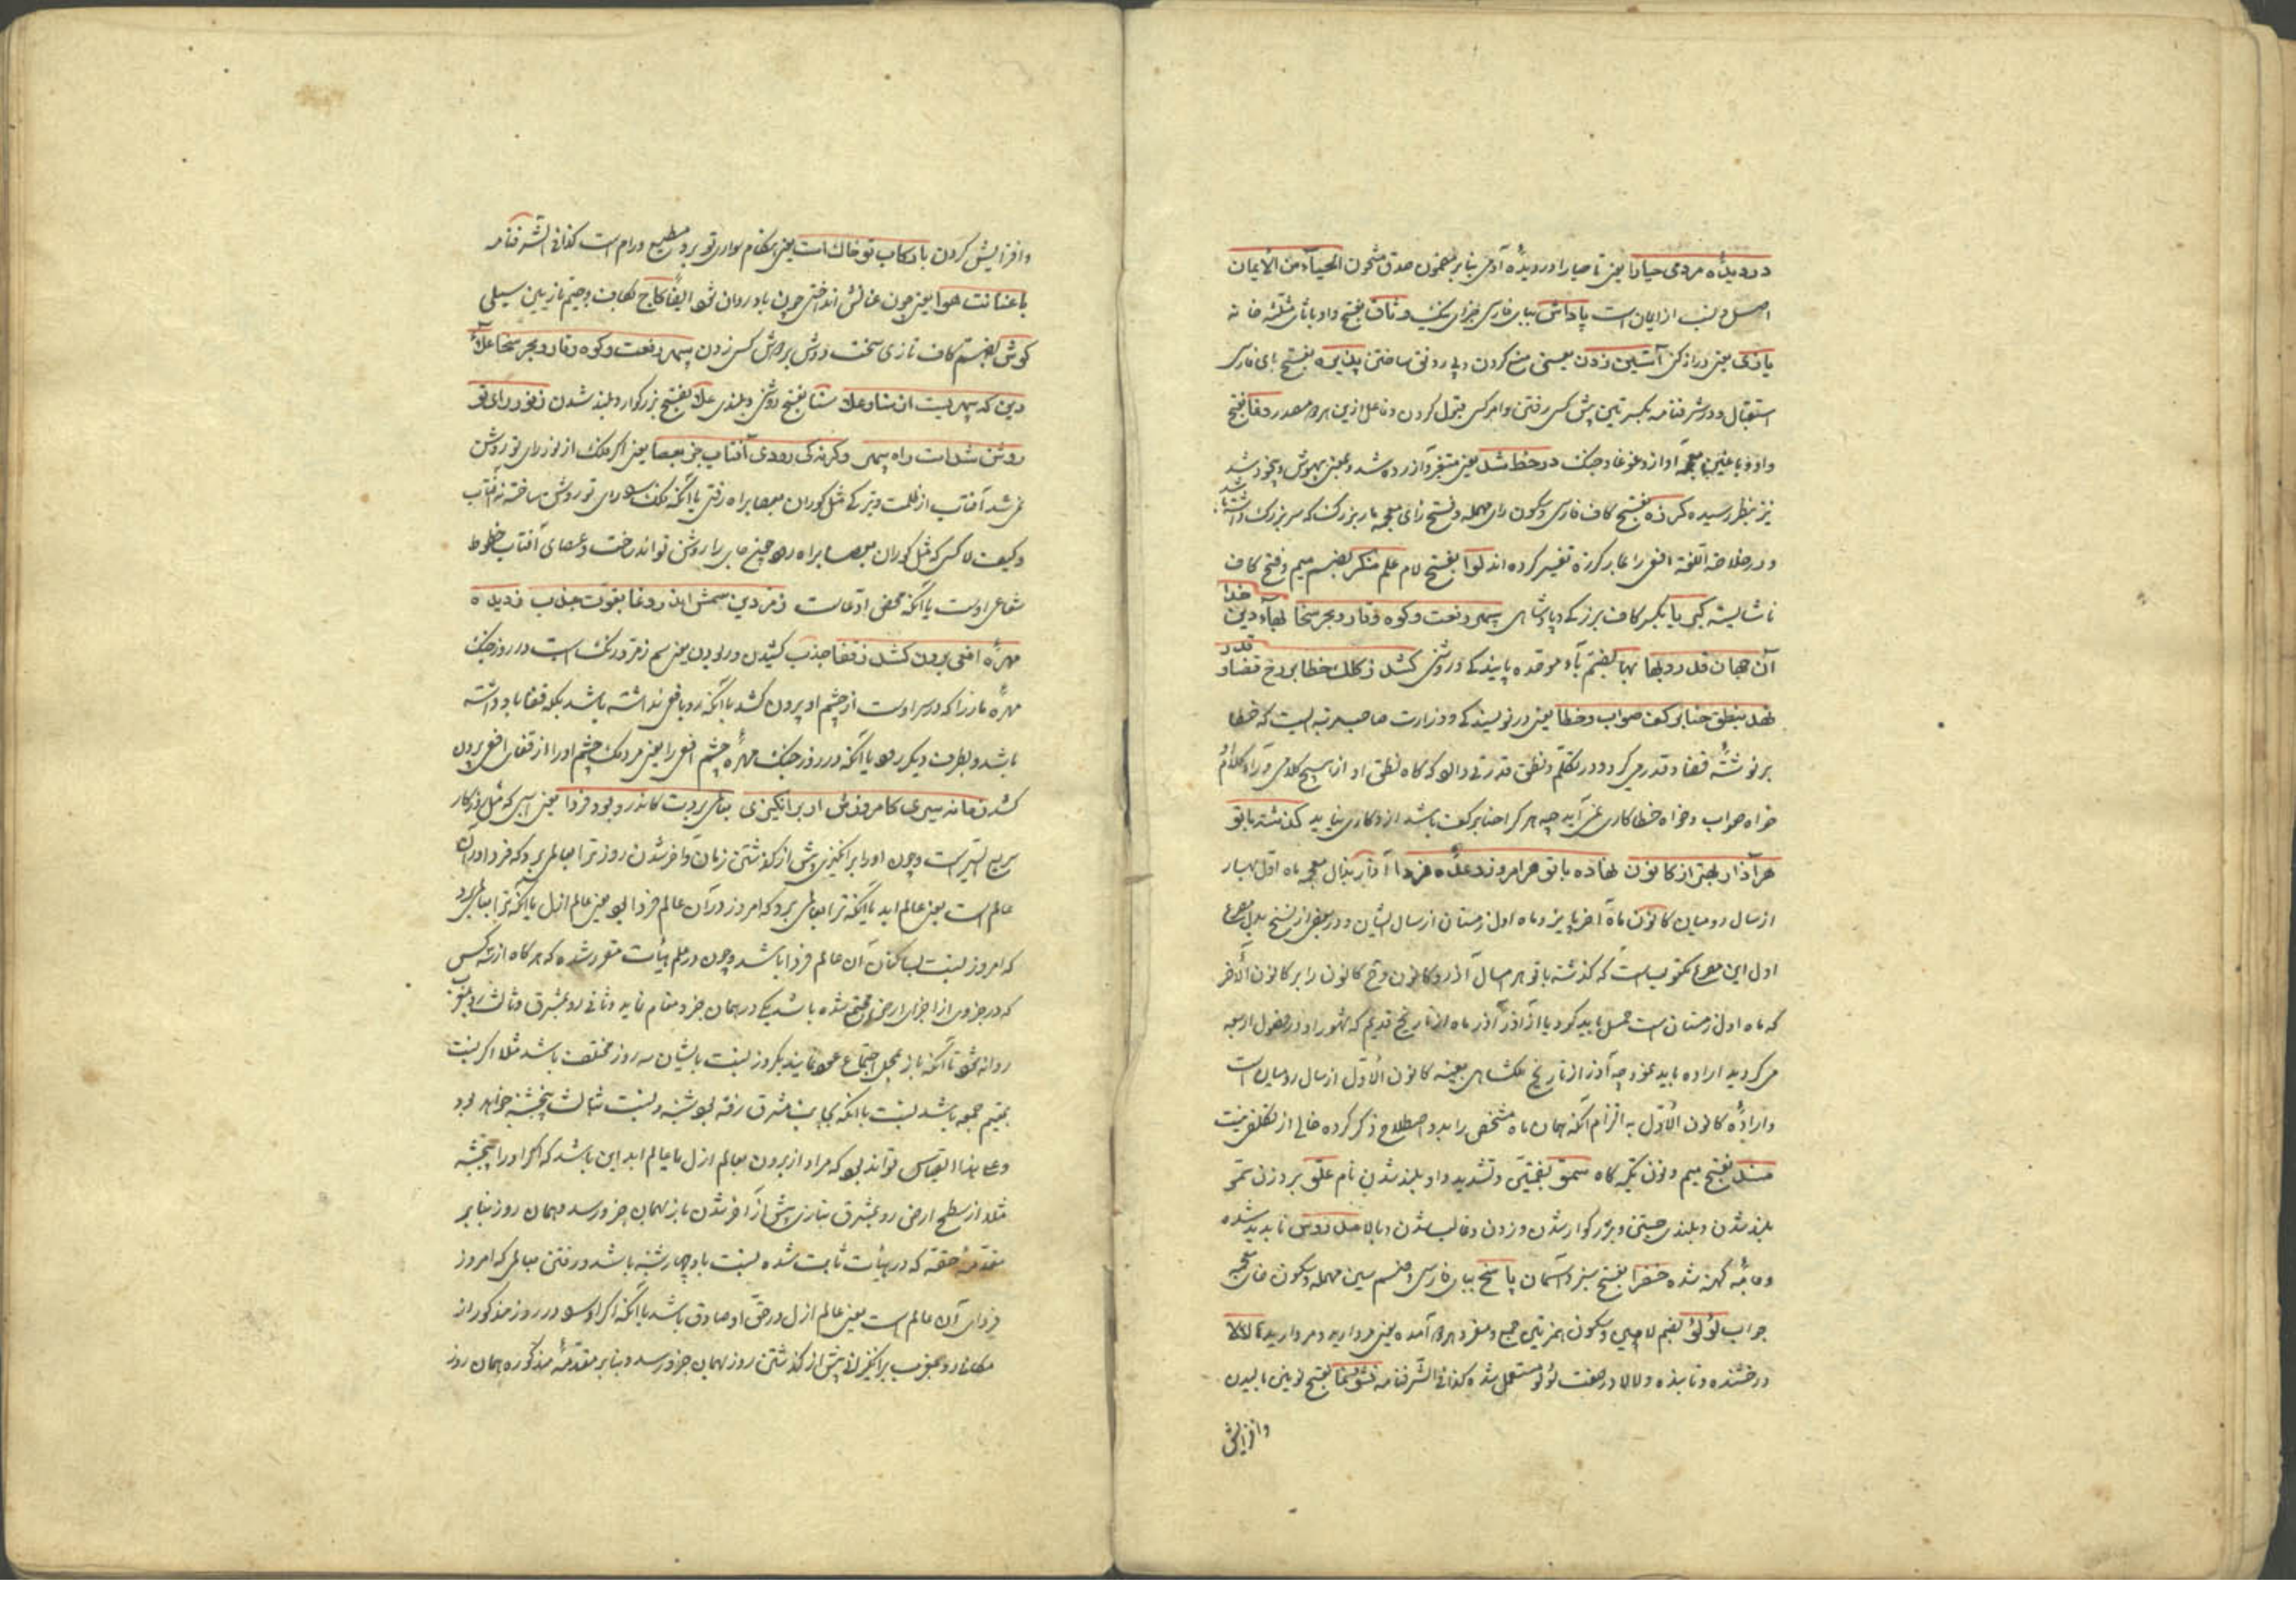 در دیدهٔ مردمی حیا را یعنی تا حیا را در دیدهٔ آدمی بنا بر مضمون صدق مشحون الحیاء من الایمان
اصل و نسب از ایمان است پاداش ببای فارسی جزای نیک وثاق بفتح واو با ثای مثلثه خانه
یازی یعنی دراز کن آستین زدن یعنی منع کردن و بی رونق ساختن پذیره بفتح بای فارسی
استقبال و در شرفنامه بکسرتین پیش کسی رفتن و امر کسی قبول کردن و فاعل ازین هر دو مصدر وغا بفتح
واو و با غین معجمه آواز و غوغا و جنک در خط شد یعنی متغیر و آزرده شد و بمعنی بیهوش و بیخود شد
نیز بنظر رسیده کرزه بفتح کاف فارسی و سکون رای مهمله و فتح زای معجمه مار بزرک که سر بزرک داشته باشد
و در خلاصة اللغة افعی را بمار کرزه تفسیر کرده اند لوا بفتح لام علم منکر بضم میم و فتح کاف
ناشایسته کیی یا بکسر کاف بزرکی و پادشاهی سپهر رفعت و کوه وقار و بحر سخا بهاء دین خدا
آن جهان قدر و بها بها بضم باء موحده پایندکی و روشنی کشد ز کلک خطا بر رخ قضا و قدر
نهد بنطق حنا بر کف صواب و خطا یعنی در نویسندکی و وزارت صاحب رتبه ایست که خطا
بر نوشتهٔ قضا و قدر می کرد و در تکلم و نطق قدرتی دارد که کاه نطق او از هیچ کلامی ورآء کلام
خواه صواب و خواه خطا کاری نمی آید چه هر کرا حنا بر کف باشد ازو کاری نیاید کذشته با تو
هر آذار بهتر از کانون نهاده با تو هر امروز وعدهٔ فردا آذار بذال معجمه ماه اول بهار
از سال رومیان کانون ماه آخر پاییز و ماه اول زمستان از سال ایشان و در بعضی از نسخ بدل مصرع
اول این مصرع مکتوبست که کذشته با تو هر سال آذر و کانون و ح کانون را بر کانون الآخر
که ماه اول زمستان است حمل باید کرد یا از آذر آذر ماه از تاریخ قدیم که شهور او در فصول اربعه
می کردید اراده باید نمود چه آذر از تاریخ ملکشاهی بعینه کانون الاول از سال رومیانست
و ارادهٔ کانون الاول به التزام آنکه همان ماه مشخص را بدو اصطلاح ذکر کرده خالی از تکلف نیست
مسند بفتح میم و نون تکیه کاه سمو بضمتین و تشدید واو بلند شدن نام علو بر وزن سمو
بلند شدن و بلندی جستن و بزرکوار شدن و زدن و غالب شدن و بالا مندروس ناپدید شده
و جامهٔ کهنه شده خضرا بفتح سبز و آسمان پاسخ ببای فارسی و ضم سین مهمله و سکون خای معجمه
جواب لؤلؤ بضم لامین و سکون همزتین جمع و مفرد هر دو آمده یعنی مروارید و مرواریدها لالا
درخشنده و تابنده و لالا در صفت لؤلؤ مستعمل شده کذا فی الشرفنامه نشو و نما بفتح نونین بالیدن
وافزایش
وافزایش کردن باد رکاب تو خاک است یعنی هنکام سواری تو برو مطیع و رام است کذا فی الشرفنامه
با عنانت هوا یعنی چون عنانش انداختی چون باد روان شود ایضا کاج بکاف و جیم تازیین سیلی
کوش بضم کاف تازی سخت دوش بر دوش کسی زدن سپهر رفعت و کوه وقار و بحر سخا علاء
دین که سپهریست از سنا و علا سنا بفتح روشنی و بلندی علا بفتح بزرکوار و بلند شدن ز نور رای تو
روشن شدست راه سپهر وکرنه کی رودی آفتاب جز بعصا یعنی اگر فلک از نور رای تو روشن
نمی شد آفتاب از ظلمت و تیرکی مثل کوران بعصا براه رفتی یا آنکه فلک را رای تو روشن ساخته نه آفتاب
و کیف لا کسی که مثل کوران بعصا براه رود چنین جایی را روشن تواند ساخت و عصای آفتاب خطوط
شعاعی اوست یا آنکه محض ادعاست زمردین سمش اندر وغا بقوت جذب ز دیده
مهرهٔ افعی برون کشد ز قفا جذب کشیدن و ربودن یعنی سم زمرد رنک است در روز جنک
مهرهٔ مار را که در سر اوست از چشم او بیرون کشد با آنکه رو بافعی نداشته باشد بلکه قفا با او داشته
باشد و بطرف دیکر رود یا آنکه در روز جنک مهرهٔ چشم افعی را یعنی مردمک چشم او را از قفای افعی بیرون
کشد زمانه سیری کامروزش ار برانکیزی بعالمی بردت کاندرو بود فردا یعنی اسبی که مثل روزکار
سریع السیر است و چون او را برانکیزی پیش از کذشتن زمان و آخر شدن روز ترا بعالمی برد که فردا در آن
عالم است یعنی عالم ابد یا آنکه ترا بعالمی برد که امروز در آن عالم فردا بود یعنی عالم ازل یا آنکه ترا بعالمی برد
که امروز نسبت بساکنان آن عالم فردا باشد و چون در علم هیأت مقرر شده که هر کاه از سه کس
که در جزوی از اجزای ارض مجتمع شده باشد یکی در همان جزو مقام نماید و ثانی رو بمشرق و ثالث رو بمغرب
روانه شود تا آنکه باز بمحل اجتماع عود نمایند یکروز نسبت بایشان سه روز مختلف باشد مثلا اکر نسبت
بمقیم جمعه باشد نسبت با آنکه بجانب مشرق رفته بود شنبه و نسبت بثالث پنجشنبه خواهد بود
و علی هذا القیاس تواند بود که مراد از بردن بعالم ازل یا عالم ابد این باشد که اکر او را پنجشنبه
مثلا از سطح ارض رو بمشرق بتازی پیش از آخر شدن باز بهمان جزو رسد و همان روز بنا بر
مقدمهٔ حقه که در هیأت ثابت شده نسبت باو چهارشنبه باشد و رفتن بعالمی که امروز
فردای آن عالم است یعنی عالم ازل در حق او صادق باشد یا آنکه اکر او را در روز مذکور از
مکانی رو بمغرب برانکیزانی پیش از کذشتن روز بهمان جزو رسد و بنا بر مقدمهٔ مذکوره همان روز